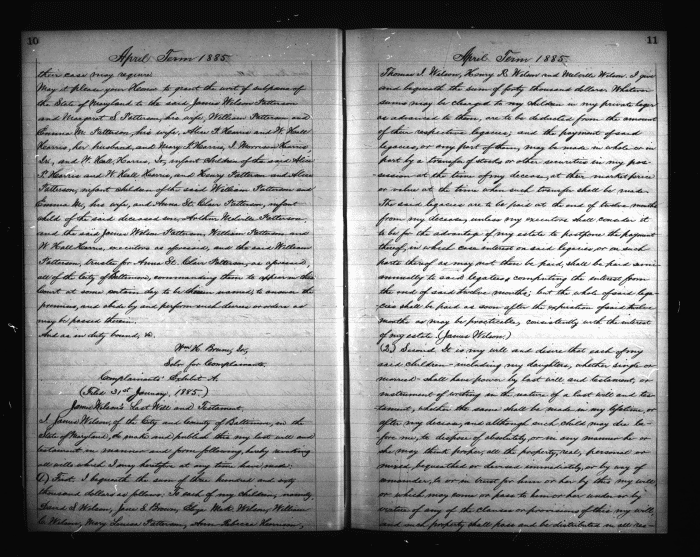 10
April Term 1885.
their case may require
May it please your Honor to grant the writ of subpoena of
the State of Maryland to the said James Wilson Patterson
and Margaret S. Patterson, his wife, William Patterson and
Emma M. Patterson, his wife, Alice P. Harris and W. Hall
Harris, her husband, and Mary P. Harris, J. Morrison Harris,
and W. Hall Harris, Jr, infant children of the said Alice
P. Harris and W. Hall Harris, and Henry Patterson and Alice
Patterson, infant children of the said William Patterson and
Emma M., his wife, and Anna St. Clair Patterson, infant
child of the said deceased son, Arthur Melville Patterson,
and the said James Wilson Patterson, William Patterson and
W. Hall Harris, executors as aforesaid, and the said William
Patterson, trustee for Anna St. Clair Patterson, as aforesaid,
all of the City of Baltimore, commanding them to appear in this
Court at some certain day to be therein named, to answer the
premises, and abide by and perform such decree or orders as
may be passed therein.
And as in duty bound, &c.
Wm H. Brune, Jr,
Solr for Complainants.
Complainants' Exhibit A.
(Filed 31st January, 1885.)
James Wilson's Last Will and Testament.
I James Wilson, of the City and County of Baltimore, in the
State of Maryland, do make and publish this my last will and
testament in manner and form following, hereby revoking
all wills which I may heretofore at any time have made:
(1.) First. I bequeath the sum of three hundred and sixty
thousand dollars as follows: To each of my children, namely,
David S. Wilson, Jane S. Brown, Wilson, William
C. Wilson, Mary Louisa Patterson, Ann Rebecca Harrison,
11
April Term 1885.
Thomas J. Wilson, Henry R. Wilson and Melville Wilson. I give
and bequeath the sum of forty thousand dollars. Whatever
sums may be charged to my children in my private leger
as advanced to them, are to be deducted from the amount
of their respective legacies; and the payment of said
legacies, or any part of them, may be made in whole or in
part by a transfer of stocks or other securities in my poss-
ession at the time of my decease, at their market price
or value at the time when such transfer shall be made.
The said legacies are to be paid at the end of twelve months
from my decease, unless my executors shall consider it
to be for the advantage of my estate to postpone the payment
thereof, in which case interest on said legacies, or on such
parts thereof as may not then be paid, shall be paid semi-
annually to said legatees, computing the interest from
the end of said twelve months; but the whole of said lega-
cies shall be paid as soon after the expiration of said twelve
months as may be practicable, consistently with the interest
of my estate. (James Wilson.)
(2.) Second. It is my will and desire that each of my
said children including my daughters, whether single or
married shall have power by last will and testament, or
instrument of writing in the nature of a last will and tes-
tament, whether the same shall be made in my lifetime, or
after my decease, and although such child may die be-
fore me, to dispose of absolutely, or in any manner he or
she may think proper, all the property, real, personal or
mixed, bequeathed or devised immediately, or by way of
remainder, to or in trust for him or her by this my will,
or which may come or pass to him or her under or by
virtue of any of the clauses or provisions of this my will,
and such property shall pass and be distributed in all res-